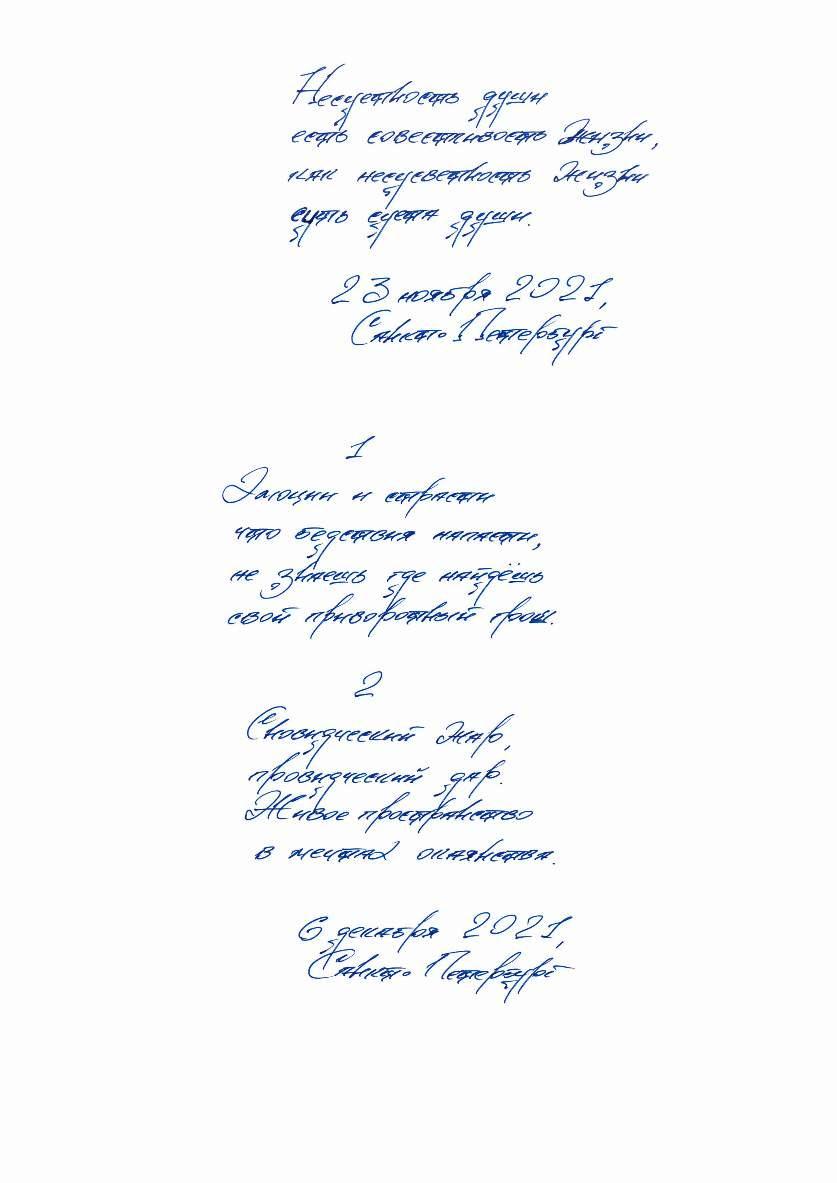 Несуетность души
есть совестливость Жизни,
как несусветность Жизни
суть суета души.
23 ноября 2021,
Санкт-Петербург
1
Эмоции и страсти
что бедствия напасти,
не знаешь где найдёшь
свой приворотный грош.
2
Сновидческий Жар,
провидческий дар.
Живое пространство
в мечтах окаянства.
6 декабря 2021,
Санкт-Петербург